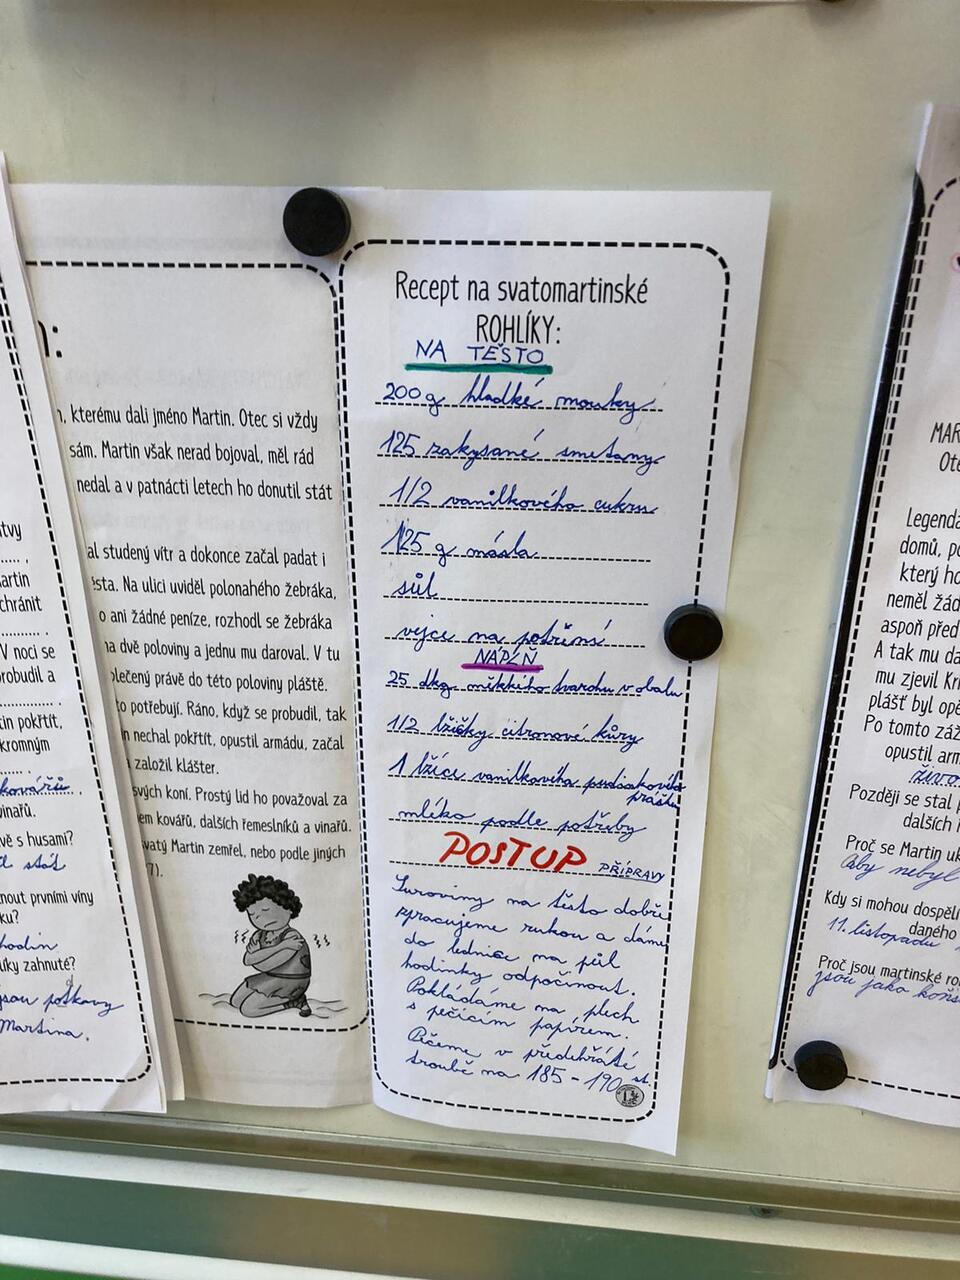 tvy
artin
chránit
V noci se
robudil a
tin pokřtít,
kromným
kovářů
vinařů.
vě s husami?
stát
tnout prvními víny
ku?
hodin
líky zahnuté?
jsou podkovy
Martina.
n:
, kterému dali jméno Martin. Otec si vždy
sám. Martin však nerad bojoval, měl rád
nedal a v patnácti letech ho donutil stát
al studený vítr a dokonce začal padat i
ěsta. Na ulici uviděl polonahého žebráka,
o ani žádné peníze, rozhodl se žebráka
na dvě poloviny a jednu mu daroval. V tu
blečený právě do této poloviny pláště.
to potřebují. Ráno, když se probudil, tak
n nechal pokřtít, opustil armádu, začal
a založil klášter.
svých koní. Prostý lid ho považoval za
em kovářů, dalších řemeslníků a vinařů.
svatý Martin zemřel, nebo podle jiných
7).
Recept na svatomartinské
ROHLÍKY:
NA TĚSTO
200 g hladké mouky
125 zakysané smetany
1/2 vanilkového cukru
125 g másla
sůl
vejce na potření
NÁPLŇ
25 dkg měkkého tvarohu v obalu
1/2 lžičky citronové kůry
1 lžíce vanilkového pudinkového
prášku
mléko podle potřeby
POSTUP PŘÍPRAVY
Suroviny na těsto dobře
zpracujeme rukou a dáme
do lednice na půl
hodinky odpočinout.
Pokládáme na plech
s pečícím papírem.
Pečeme v předehřáté
troubě na 185 - 190 st.
MAR
Ote
Legenda
domů, po
který ho
neměl žád
aspoň před
A tak mu da
mu zjevil Kri
plášť byl opě
Po tomto záž
opustil arm
živo
Později se stal p
dalších ř
Proč se Martin uk
Aby nebyl
Kdy si mohou dospělí
daného
11. listopadu
Proč jsou martinské ro
jsou jako koňs